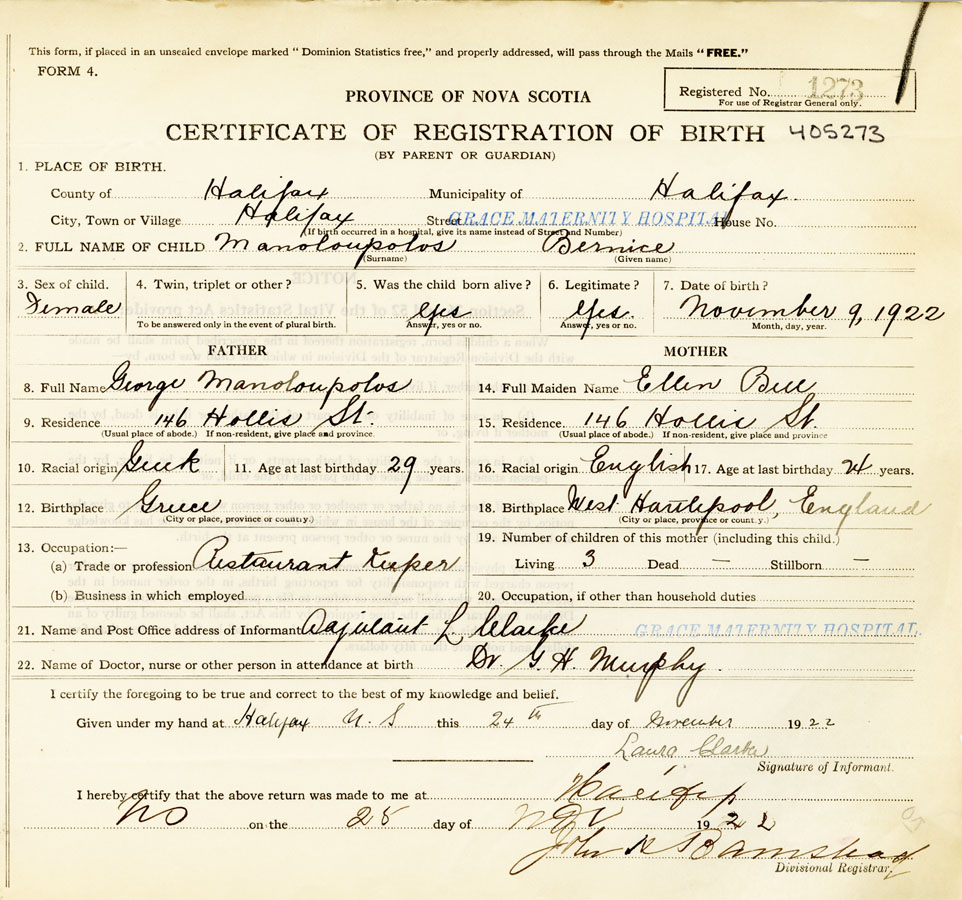 This form, if placed in an unsealed envelope marked "Dominion Statistics free," and properly addressed, will pass through the Mails "FREE."
FORM 4.
Registered No. 1273
For use of Registrar General only.
PROVINCE OF NOVA SCOTIA
CERTIFICATE OF REGISTRATION OF BIRTH 405273
(BY PARENT OR GUARDIAN)
1. PLACE OF BIRTH.
County of Halifax Municipality of Halifax
City, Town or Village Halifax Street GRACE MATERNITY HOSPITAL House No.
(If birth occurred in a hospital, give its name instead of Street and Number)
2. FULL NAME OF CHILD Manoloupolos Bernice
(Surname) (Given name)
3. Sex of child. 4. Twin, triplet or other? 5. Was the child born alive? 6. Legitimate? 7. Date of birth?
Female Yes Yes. November 9, 1922
To be answered only in the event of plural birth. Answer, yes or no. Answer, yes or no. Month, day, year.
FATHER MOTHER
8. Full Name George Manoloupolos 14. Full Maiden Name Ellen Bell
9. Residence 146 Hollis St. 15. Residence 146 Hollis St.
(Usual place of abode.) If non-resident, give place and province. (Usual place of abode.) If non-resident, give place and province
10. Racial origin Greek 11. Age at last birthday 29 years. 16. Racial origin English 17. Age at last birthday 24 years.
12. Birthplace Greece 18. Birthplace West Hartlepool, England
(City or place, province or country.) (City or place, province or country.)
13. Occupation:— 19. Number of children of this mother (including this child.)
(a) Trade or profession Restaurant Keeper Living 3 Dead — Stillborn —
(b) Business in which employed 20. Occupation, if other than household duties
21. Name and Post Office address of Informant Adjutant L Clarke GRACE MATERNITY HOSPITAL.
22. Name of Doctor, nurse or other person in attendance at birth Dr. G. H. Murphy.
I certify the foregoing to be true and correct to the best of my knowledge and belief.
Given under my hand at Halifax N. S this 24th day of November 1922
Laura Clarke
Signature of Informant.
I hereby certify that the above return was made to me at Halifax
NS on the 28 day of Nov 1922
John
Divisional Registrar.